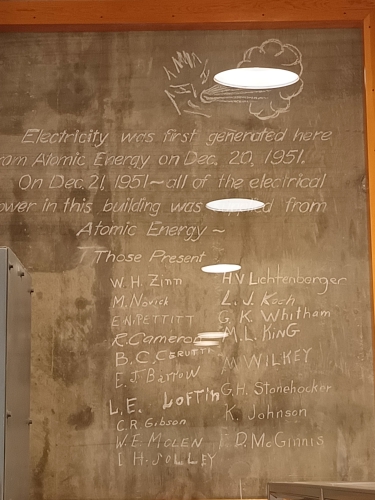 Electricity was first generated here
from Atomic Energy on Dec. 20, 1951.
On Dec. 21, 1951~all of the electrical
power in this building was from
Atomic Energy~
Those Present
W. H. Zinn
M. Novick
E. N. PETTITT
R. Cameron
B. C. CERUTTI
E. J. Barrow
L. E. LOFTIN
C. R. Gibson
W. E. MOLEN
H. SOLLEY
H V Lichtenberger
L. J. Koch
G. K. Whitham
M. L. KING
M WILKEY
G. H. Stonehocker
K. Johnson
D. McGinnis